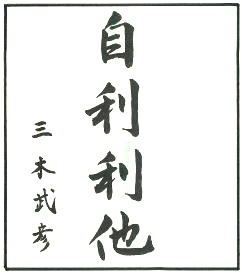 自利利他
三木武彦